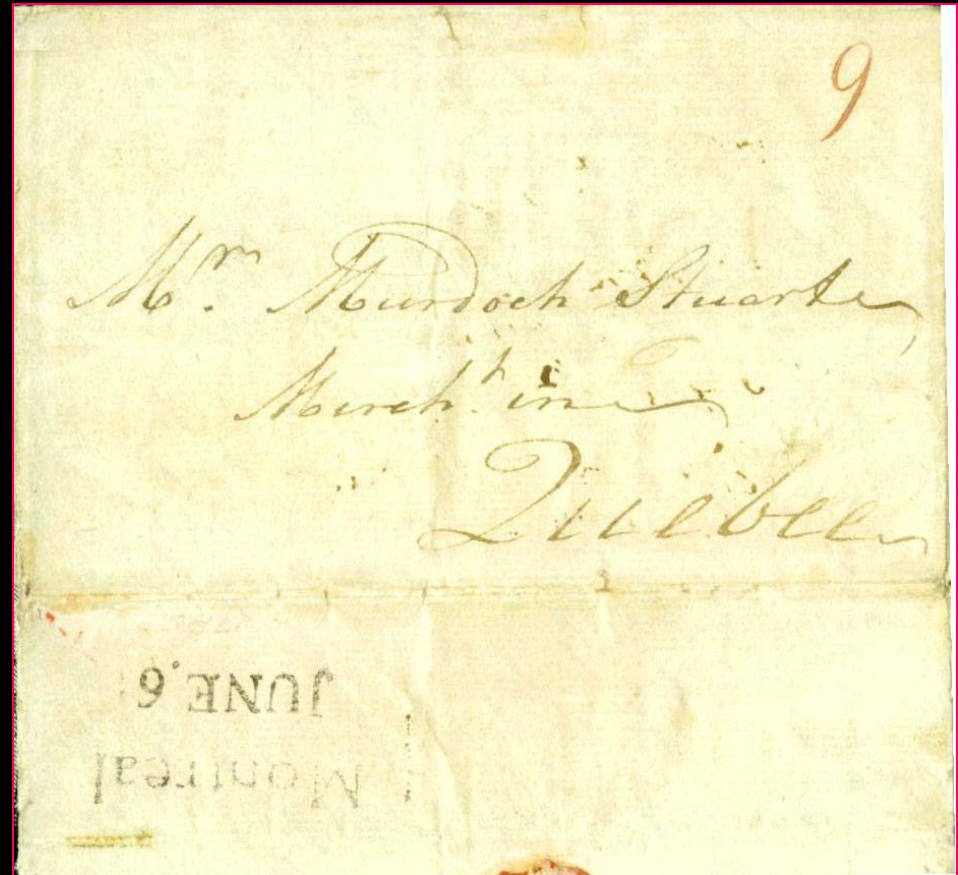 9
Mr. Murdoch Stuart
Mercht in
Quebec
Montreal
JUNE,6